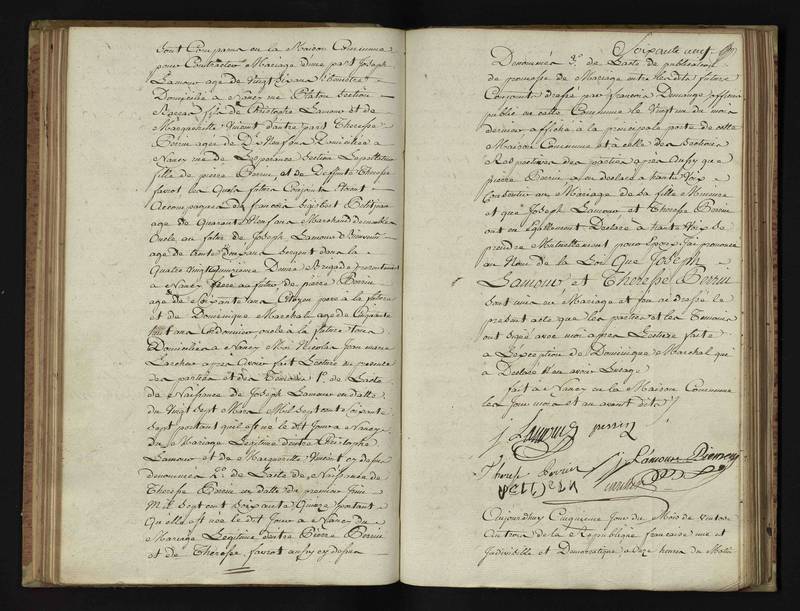 sont Comparus en la Maison Commune
pour Contracter Mariage d'une part Joseph
Lamour agé de vingt six ans
Domicilié a Nancy né Platon Section
fils de Christophe Lamour et de
Margueritte Vincent d'autre part Theresse
Perrin agée de Dix Neuf ans Domiciliée a
Nancy née de Section
fille de pierre Perrin, et de Deffunte Theresse
favrot les Quels futurs Conjoints étant
accompagnés de francois
agé de Quarante Neuf ans Marchand demeurant
Oncle au futur de Joseph Lamour
agé de trente ans Sergent dans la
Quatre vingt quinzieme Demie Brigade
a Nancy frere au futur de pierre Perrin
agé de Soixante ans Citoyen pere a la future
et de Dominique Marchal agé de Cinquante
ans Cordonnier oncle à la future tous
Domiciliés a Nancy Moi Nicolas Jean marie
apres avoir fait Lecture en presence
des parties et des Temoins 1º. de Lacte
de Naissance de Joseph Lamour en datte
du vingt Sept Mars Mil Sept cent soixante
Sept portant quil est né le dit Jour a Nancy
du Mariage Legitime d'entre Christophe
Lamour et de Margueritte Vincent cy dessus
denommés 2º. de Lacte de Naissance de
Theresse Perrin en datte du premier Juin
Mil Sept cent soixante Quinze portant
Qu'elle est née le dit Jour a Nancy du
Mariage Legitime d'entre Pierre Perrin
et de Theresse favrot aussy cy dessus
Soixante neuf
Denommés 3º. de Lacte de publication
de promesse de Mariage entre lesdits futurs
Conjoints dressé par francois Demange officier
public en cette Commune le vingt un du mois
dernier affiché à la principale porte de cette
Maison Commune et à celle des Sections
Respectives des parties apres aussy que
pierre Perrin a eu declaré a haute Voix
Consentir au Mariage de sa fille Mineure
et que Joseph Lamour et Theresse Perrin
ont eu Egallement Declaré a haute Voix se
prendre Mutuellement pour Epoux J'ai prononcé
au Nom de la Loi Que Joseph
Lamour et Theresse Perrin
sont unis en Mariage et j'en ai dressé le
present acte que les parties et les Temoins
ont signé avec moi apres Lecture faite
a L'exception de Dominique Marchal qui
a Declaré n'en avoir L'usage
fait a Nancy en la Maison Commune
les Jour mois et an avant dits
J Lamour perrin
Therese Perrin J Lamour
Aujourdhuy Cinquieme Jour du Mois de
an trois de la Republique francaise une et
Indivisible et Democratique a onze heures du Matin